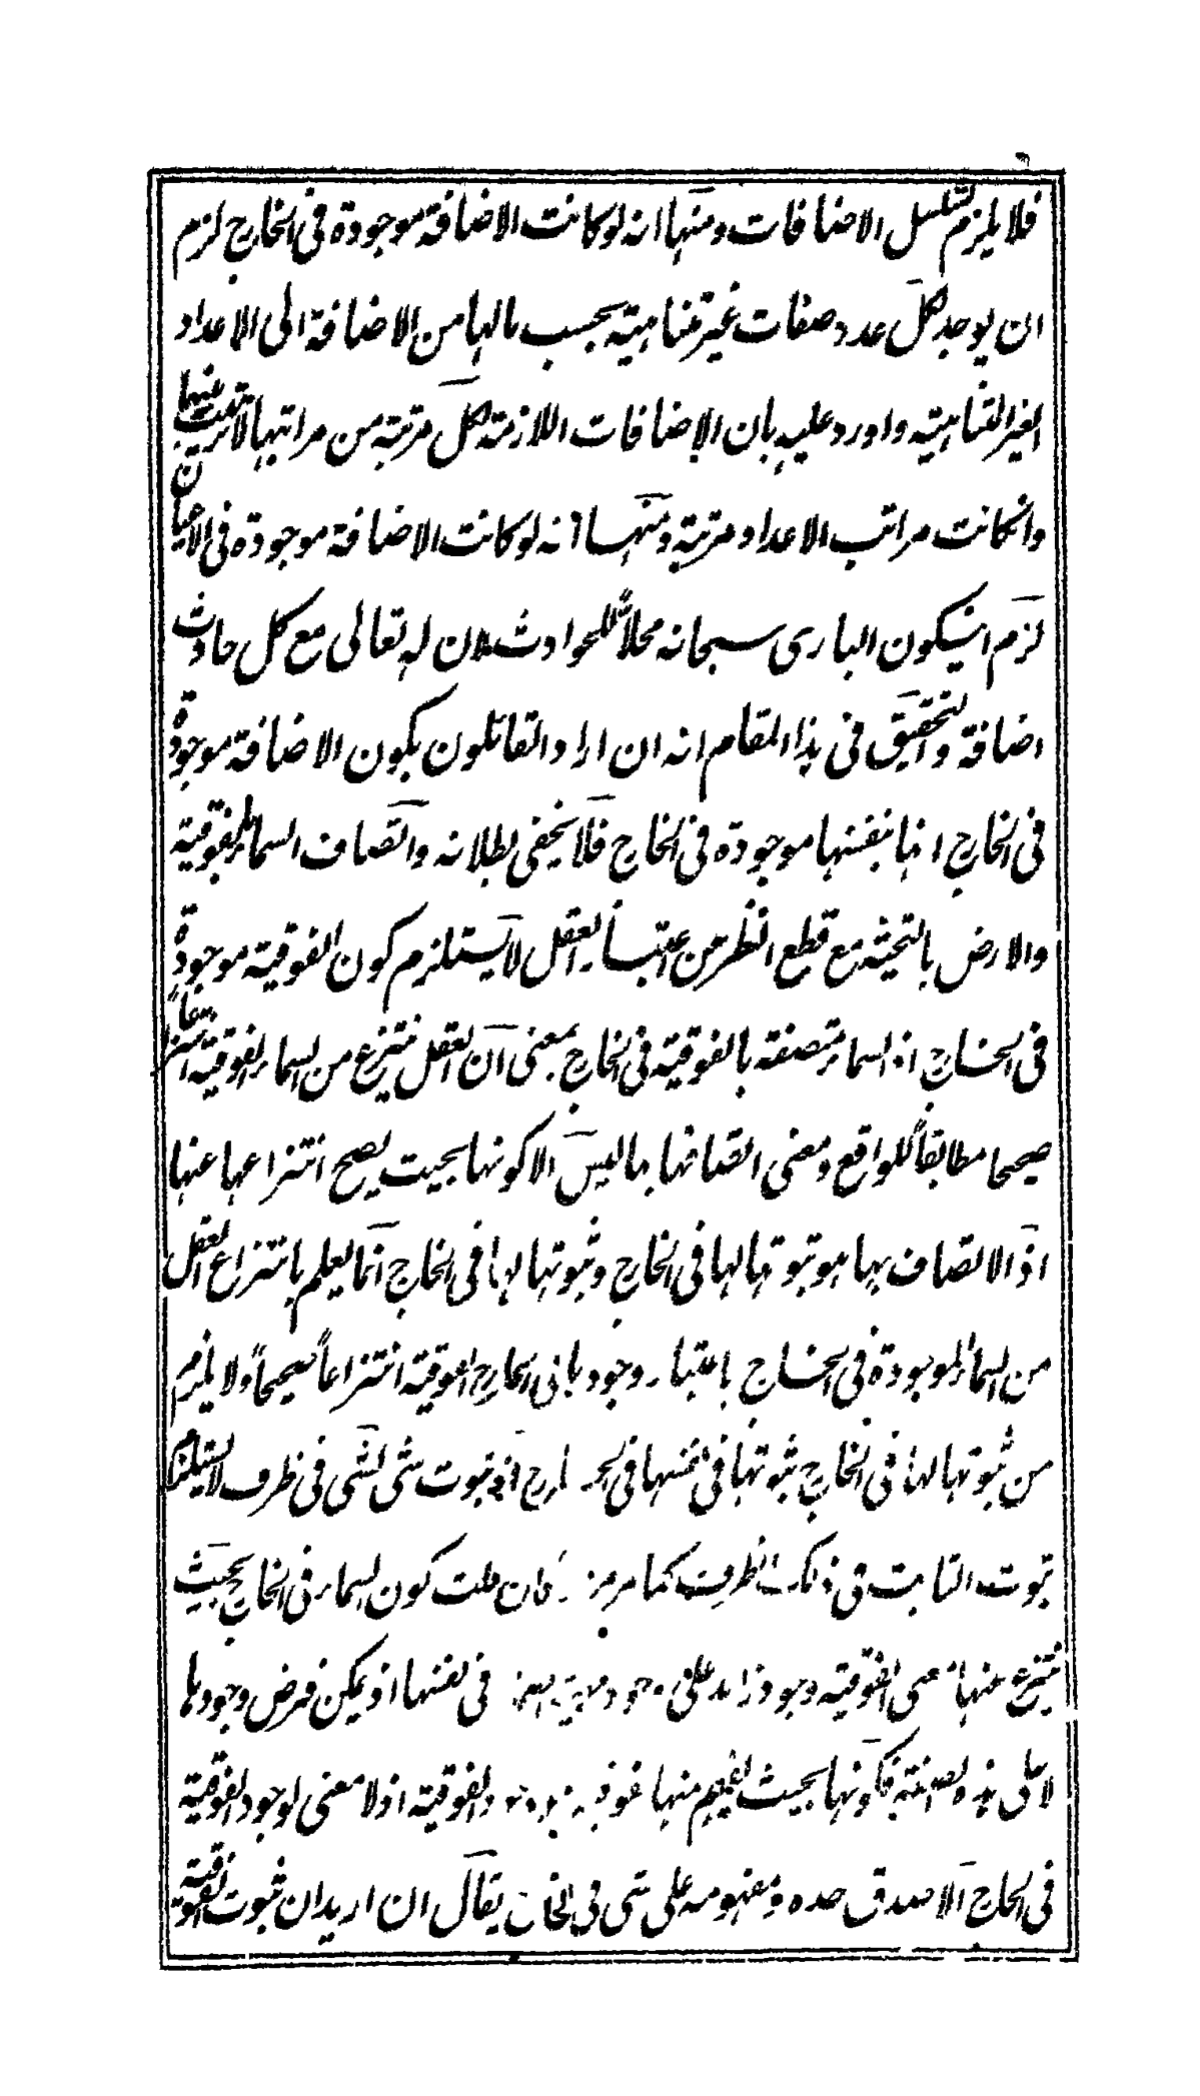 ٦
فلا يلزم تسلسل الاضافات ومنها انه لو كانت الاضافة موجودة فى الخارج لزم
ان يوجد لكل عدد صفات غير متناهية بحسب مالها من الاضافة الى الاعداد
الغير المتناهية واورد عليه بان الاضافات اللازمة لكل مرتبة من مراتبها لا ترتب فيها
وانكانت مراتب الاعداد مرتبة ومنها انه لو كانت الاضافة موجودة فى الاعيان
لزم انيكون البارى سبحانه محلاً للحوادث لان له تعالى مع كل حادث
اضافة والتحقيق فى هذا المقام انه ان اراد القائلون بكون الاضافة موجودة
فى الخارج انها بنفسها موجودة فى الخارج فلا يخفى بطلانه واتصاف السماء بالفوقية
والارض بالتحتية مع قطع النظر عن اعتبار العقل لا يستلزم كون الفوقية موجودة
فى الخارج اذ السماء متصفة بالفوقية فى الخارج بمعنى ان العقل ينتزع من السماء الفوقية انتزاعاً
صحيحا مطابقاً للواقع ومعنى اتصافها بها ليس الا كونها بحيث يصح انتزاعها عنها
اذ الاتصاف بها هو ثبوتها لها فى الخارج وثبوتها لها فى الخارج انما يعلم بانتزاع العقل
من السماء الموجودة فى الخارج باعتبار وجودها فى الخارج الفوقية انتزاعاً صحيحاً ولا يلزم
من ثبوتها لها فى الخارج ثبوتها فى نفسها فى الخارج اذ ثبوت شى لشى فى ظرف لا يستلزم
ثبوت الثابت فى ذلك الظرف كما مر فان قلت كون السماء فى الخارج بحيث
ينتزع عنها الفوقية وجود زائد على وجود فى نفسها اذ يمكن فرض وجودها
لا على هذه الصفة فكونها بحيث يفهم منها وجود الفوقية اذ لا معنى لوجود الفوقية
فى الخارج الا صدق حده ومفهومه على شى فى الخارج يقال ان اريد ان ثبوت الفوقية